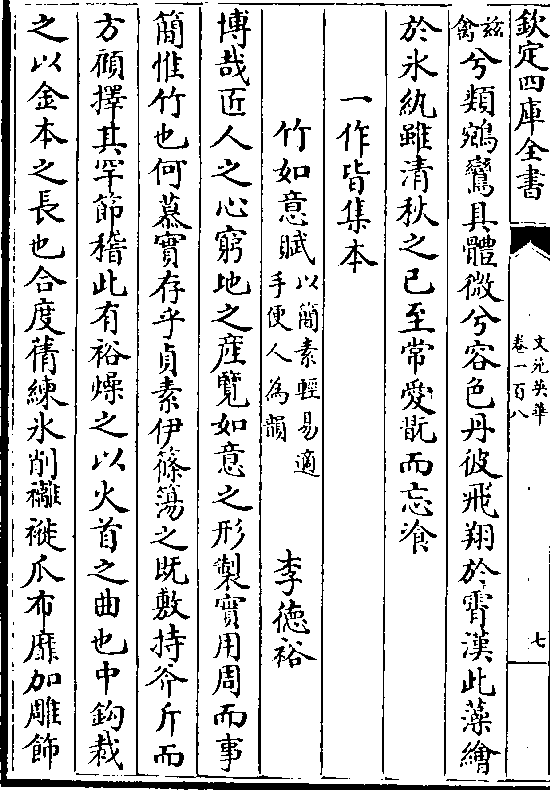 欽定四庫全書
文苑英華
卷一百八
七
茲
禽兮類鵷鸞具體微兮容色丹彼飛翔於霄漢此藻繪
於氷紈雖清秋之已至常愛翫而忘飡
一作皆集本
竹如意賦以簡素輕易適手便人為韻 李德裕
博哉匠人之心窮地之産覽如意之形製實用周而事
簡惟竹也何慕實存乎貞素伊篠簜之既敷持斧斤而
方顧擇其罕節稽此有裕燥之以火首之曲也中鈎裁
之以金本之長也合度蒨練氷削襳褷爪布靡加雕飾